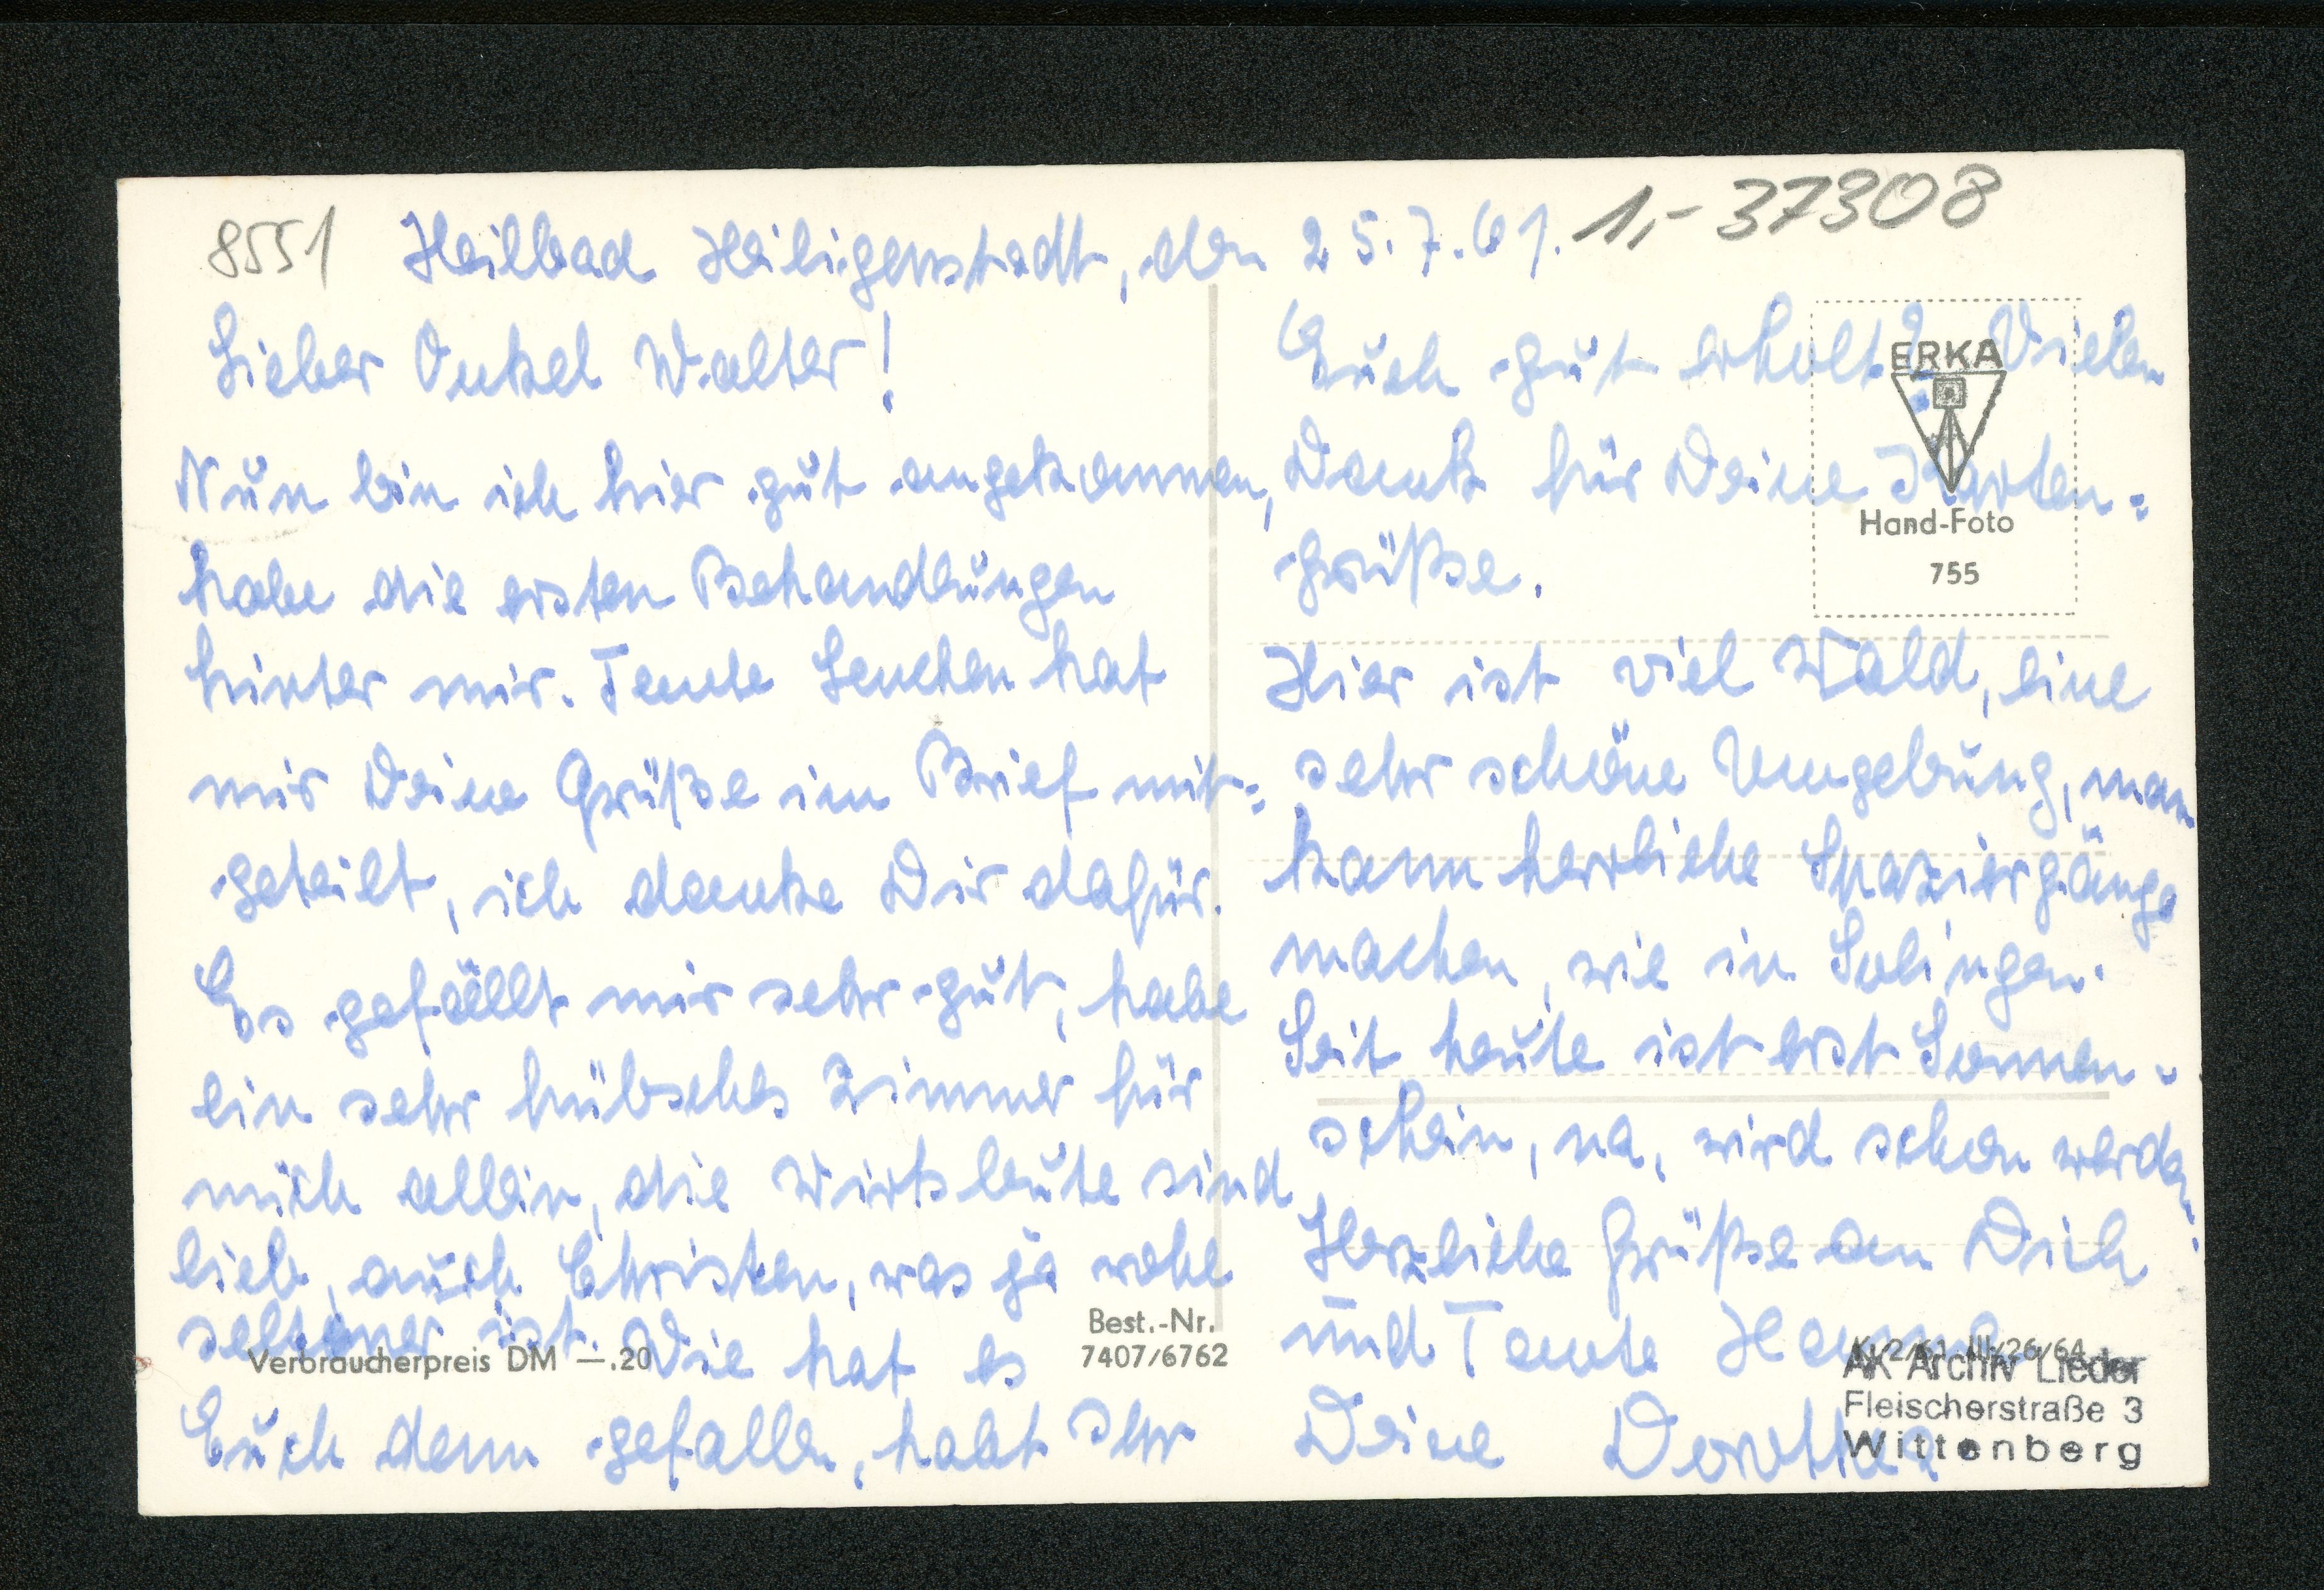 8551
Heilbad Heiligenstadt, den 25.7.61.
1,- 37308
Lieber Onkel Walter!
Nun bin ich hier gut angekommen,
habe die ersten Behandlungen
hinter mir. Tante Lenchen hat
mir Deine Grüße im Brief mit=
geteilt, ich danke Dir dafür.
Es gefällt mir sehr gut, habe
ein sehr hübsches Zimmer für
mich allein, die Wirtsleute sind
lieb, auch Christen, was ja wohl
seltener ist. Wie hat es
Euch denn gefallen, habt Ihr
Euch gut erholt? Vielen
Dank für Deine Karten=
grüße.
Hier ist viel Wald, eine
sehr schöne Umgebung, man
kann herrliche Spaziergänge
machen, wie in Solingen.
Seit heute ist erst Sonnen-
schein, na, wird schon werden!
Herzliche Grüße an Dich
und Tante Hanna
Deine Dorothea
ERKA
Hand-Foto
755
Verbraucherpreis DM —.20
Best.-Nr.
7407/6762
K 2/61 III/26/64
AK Archiv Lieder
Fleischerstraße 3
Wittenberg